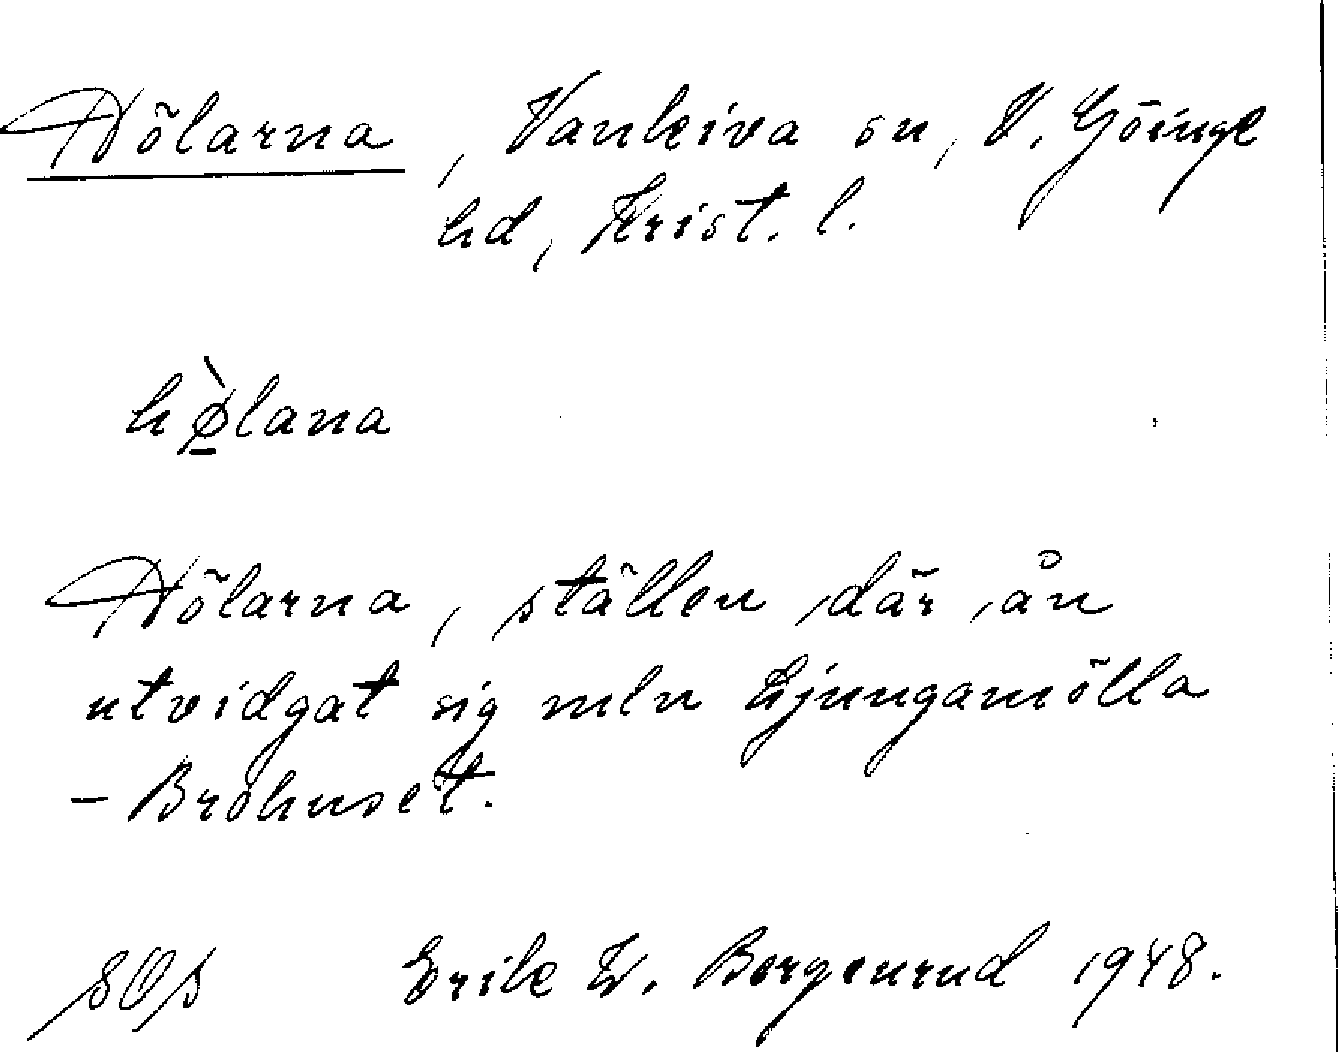 Hölarna, Vankiva sn, V. Göinge
hd, Krist. l.
hø̀lana
Hölarna, ställen där ån
utvidgat sig mln Ljungamölla
- Brohuset.
SOS Erik W. Bergenrud 1948.